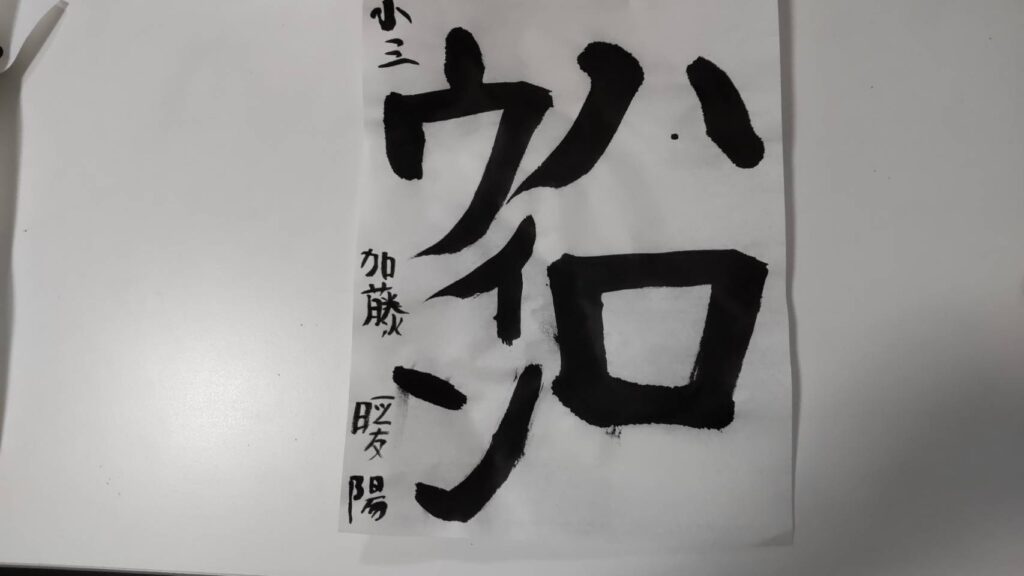 ハロ
ウィン
小三 加藤 暖陽